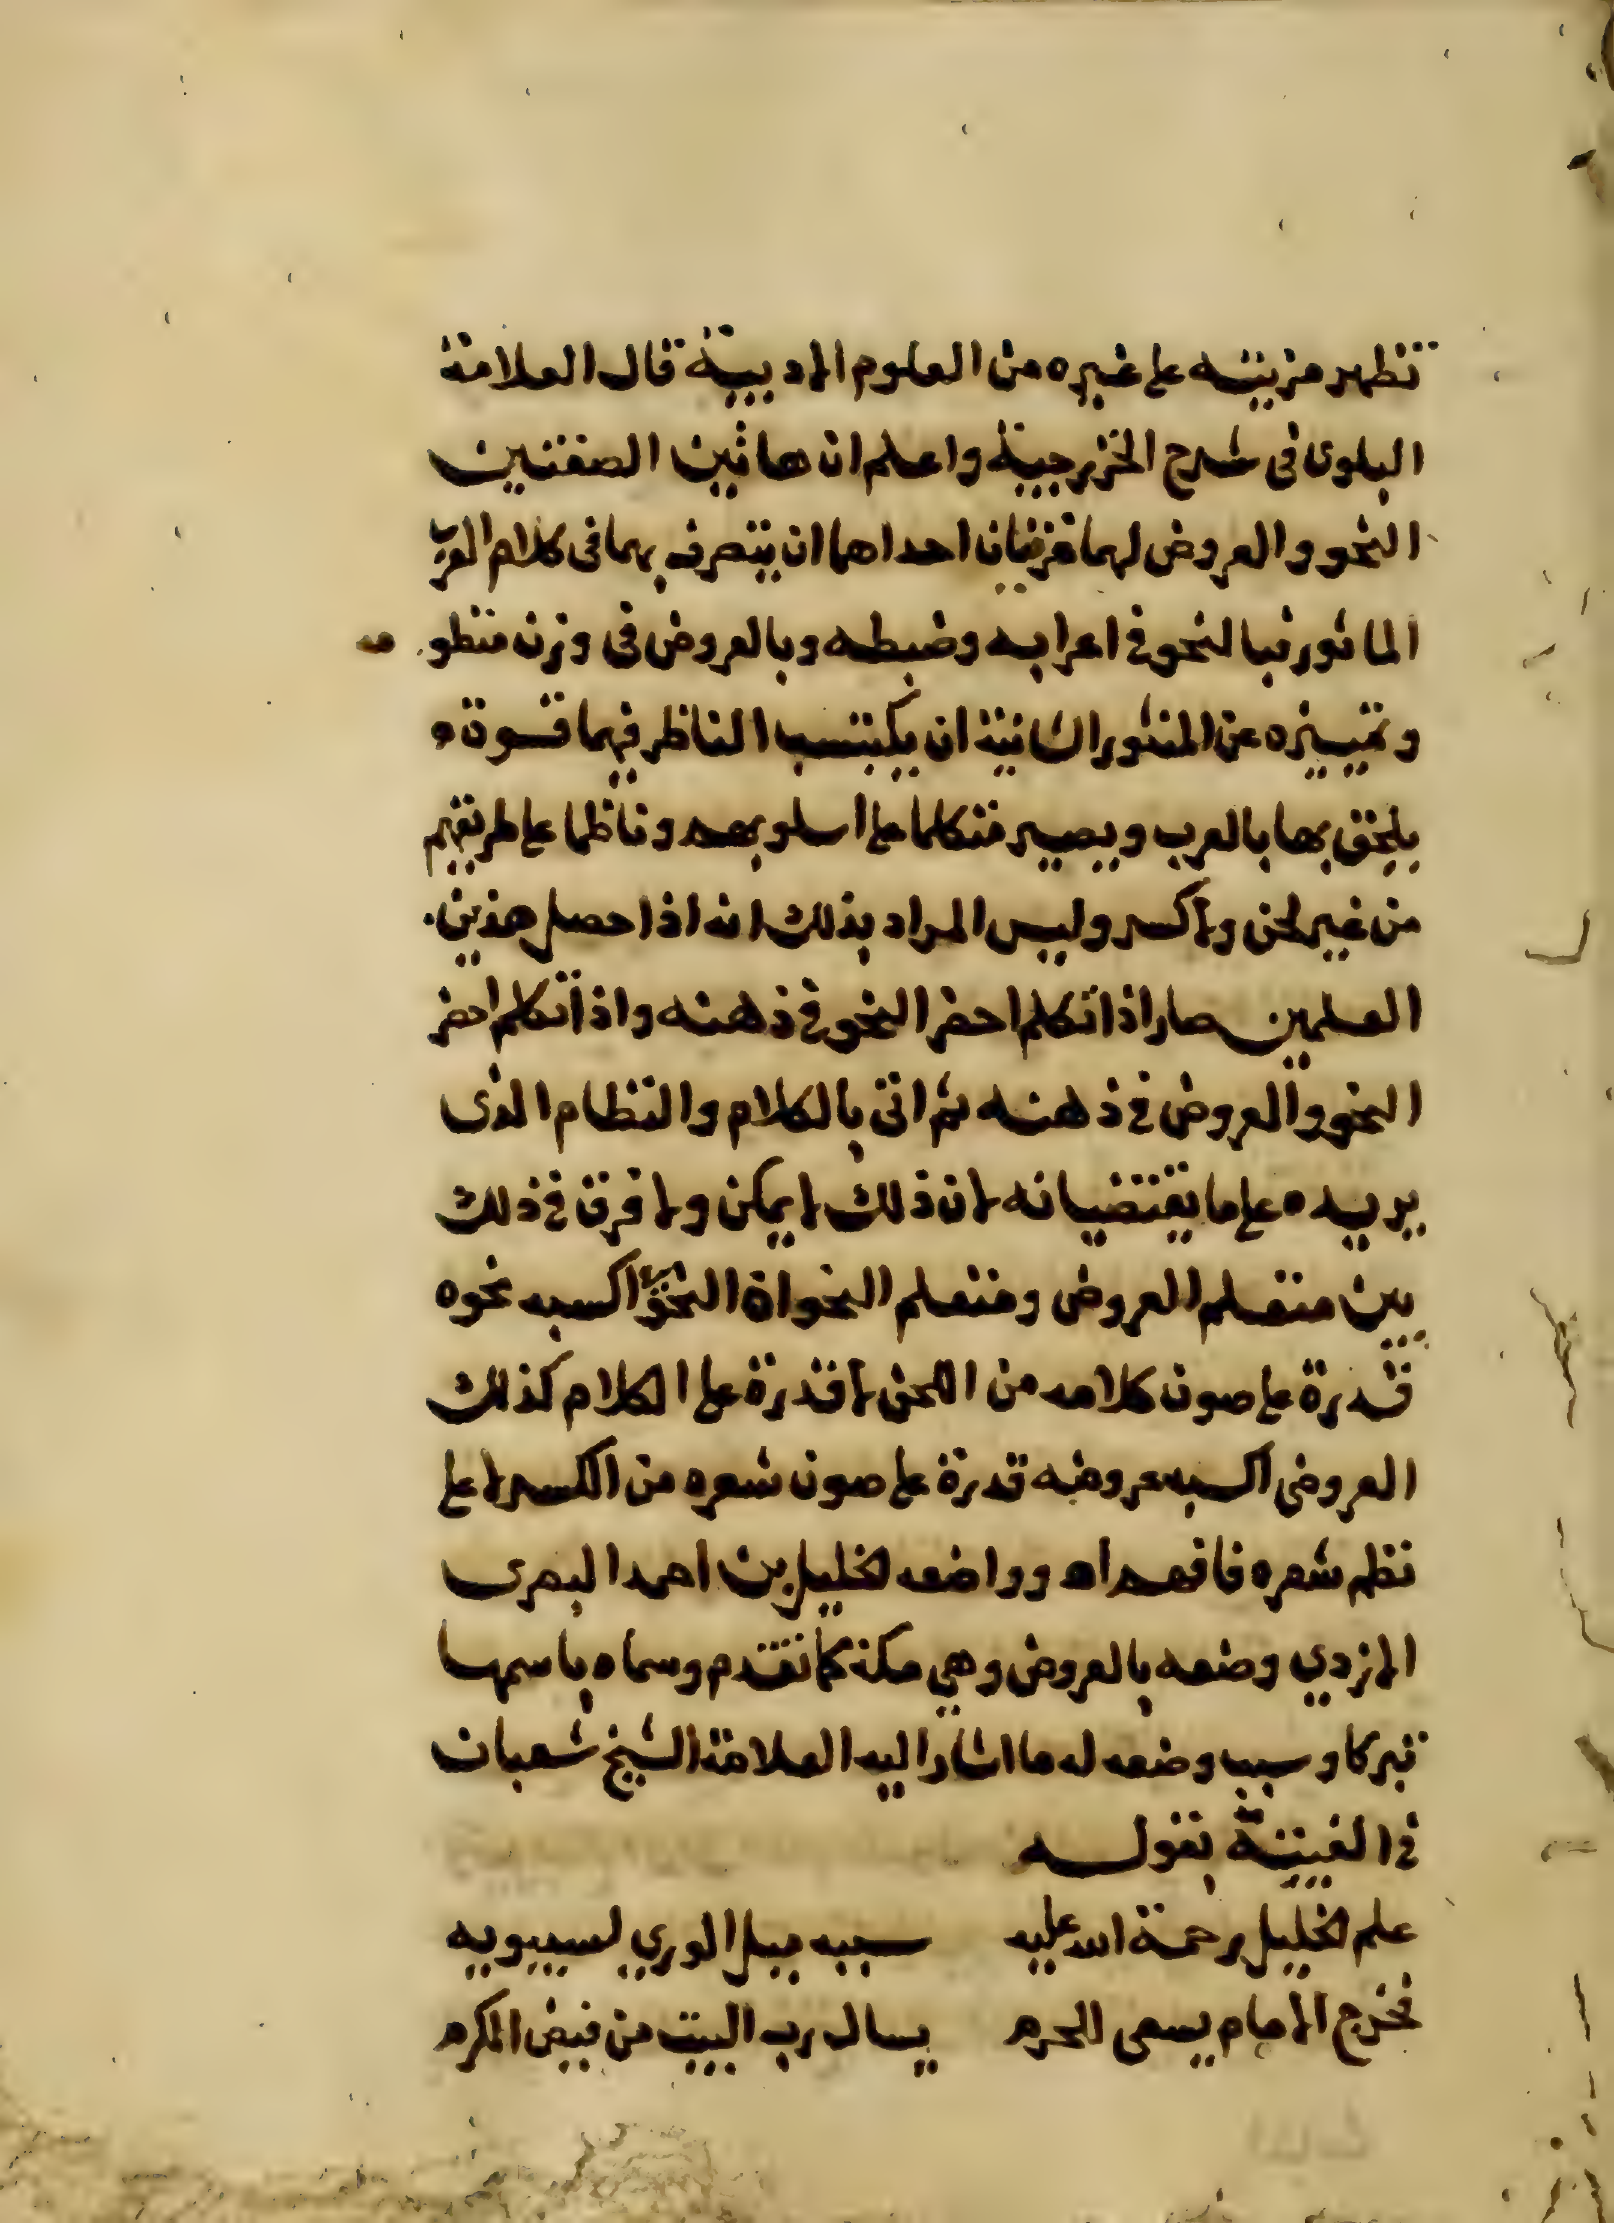 تظهر مزيته على غيره من العلوم الادبية قال العلامة
البلوى فى شرح الخزرجية واعلم ان هاتين الصفتين
النحو والعروض لهما مزيتان احداهما ان يتصرف بهما فى كلام العرب
الماثور فبالنحو فى اعرابه وضبطه وبالعروض فى وزن منظومه
وتمييزه عن المنثور الثانية ان يكتسب الناظر فيهما قوة
يلحق بها بالعرب ويصير متكلما على اسلوبهم وناظما على طريقتهم
من غير لحن ولا كسر وليس المراد بذلك انه اذا حصل هذين
العلمين صار اذا تكلم احضر النحو فى ذهنه واذا تكلم احضر
النحو والعروض فى ذهنه ثم اتى بالكلام والنظام الذى
يريده على ما يقتضيانه لان ذلك لا يمكن ولا فرق فى ذلك
بين متعلم العروض ومتعلم النحو اذ النحوي اكسبه نحوه
قدرة على صون كلامه من اللحن لا قدرة على الكلام كذلك
العروضى اكسبه عروضه قدرة على صون شعره من الكسر لا على
نظم شعره فافهم اه وواضعه الخليل بن احمد البصرى
الازدي وضعه بالعروض وهي مكة كما تقدم وسماه باسمها
تبركا وسبب وضعه له ما اشار اليه العلامة الشيخ شعبان
فى الفيته بقوله
علم الخليل رحمة الله عليه سببه ميل الوري لسيبويه
فخرج الامام يسعى للحرم يسال رب البيت من فيض الكرم